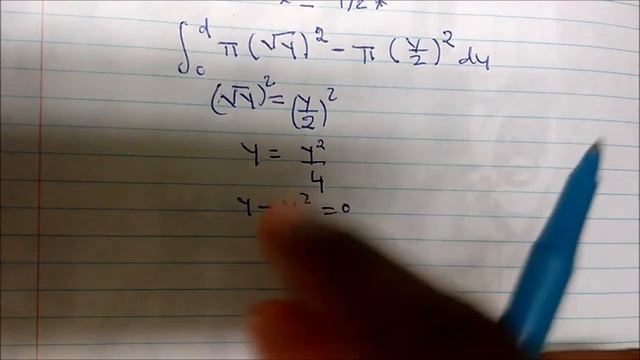 ∫₀ᵈ π(√y)² - π(y/2)² dy
(√y)² = (y/2)²
y = y²/4
y - y² = 0